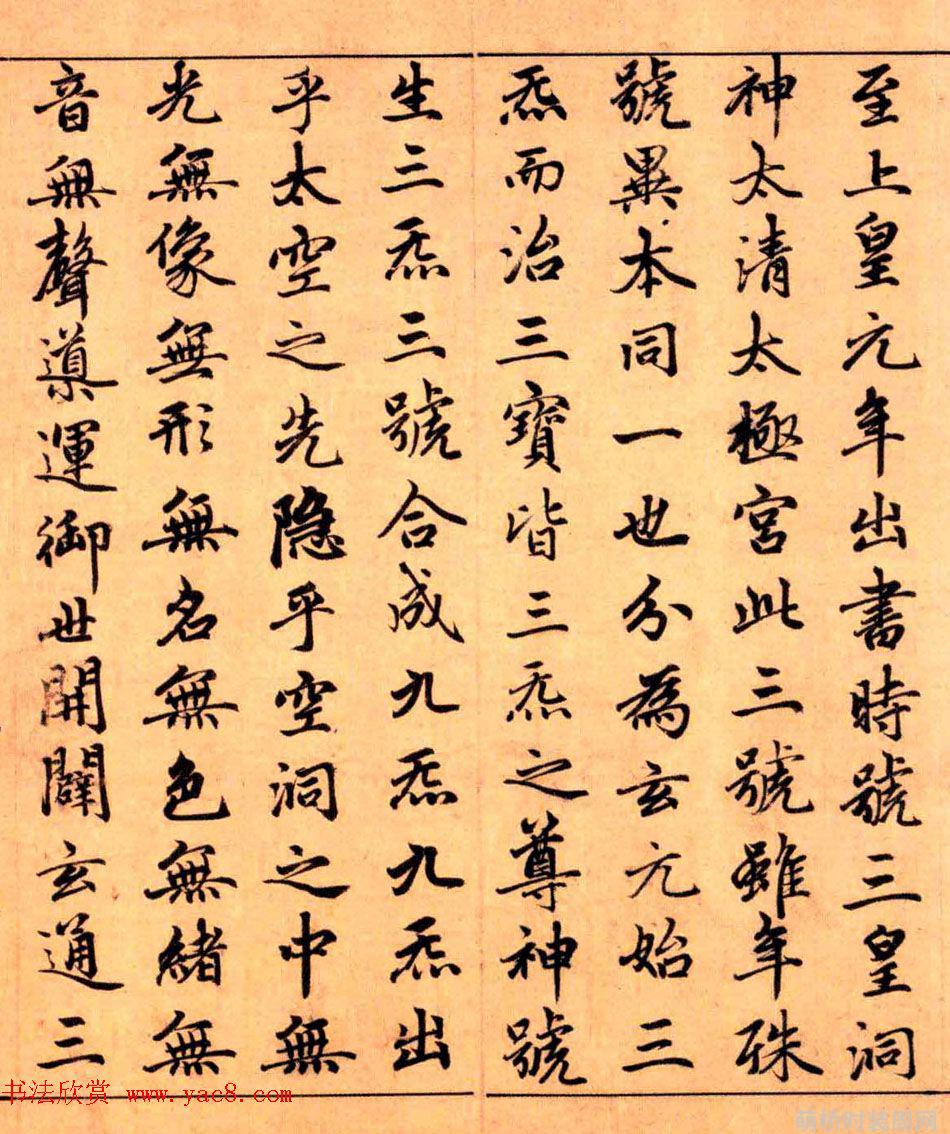 至上皇元年出書時號三皇洞
神太清太極宮此三號雖年殊
號異本同一也分為玄元始三
炁而治三寶皆三炁之尊神號
生三炁三號合成九炁九炁出
乎太空之先隐乎空洞之中無
光無像無形無名無色無緒無
音無聲導運御世開闢玄通三
书法欣赏 www.yac8.com